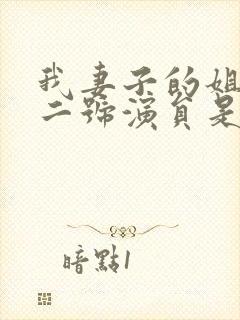 我妻子的姐
二號演員是
暗點1